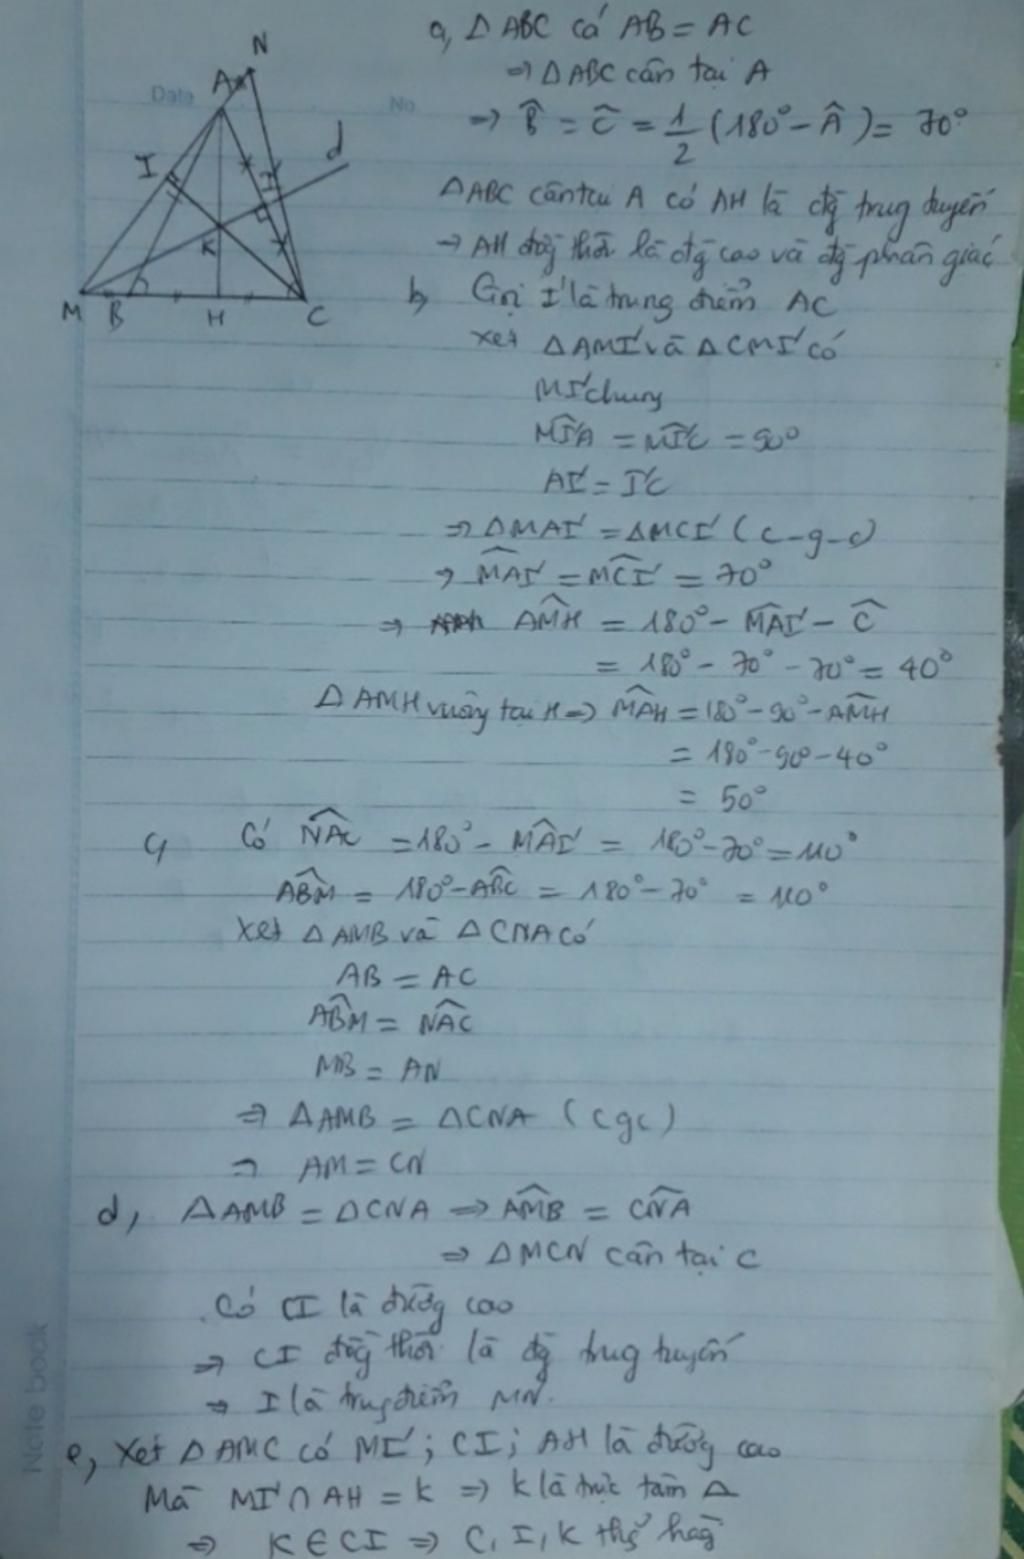 N
a, Δ ABC có AB = AC
⇒ Δ ABC cân tại A
A
Date
No
⇒ B̂ = Ĉ = 1/2 (180° - Â) = 70°
d
I
I'
ΔABC cân tại A có AH là đg trug tuyến
K
→ AH đồg thời là đg cao và đg phân giác
M B H C
b, Gọi I' là trung điểm AC
xét Δ AMI' và Δ CMI' có
MI' chung
MI'A = MI'C = 90°
AI' = I'C
⇒ Δ MAI' = ΔMCI' (c-g-c)
⇒ MAI' = MCI' = 70°
⇒ AMH = 180° - MAI' - Ĉ
= 180° - 70° - 70° = 40°
Δ AMH vuông tại H ⇒ MAH = 180° - 90° - AMH
= 180° - 90° - 40°
= 50°
c, Có NAC = 180° - MAI' = 180° - 70° = 110°
ABM = 180° - ABC = 180° - 70° = 110°
Xét Δ AMB và Δ CNA có
AB = AC
ABM = NAC
MB = AN
⇒ Δ AMB = Δ CNA (cgc)
⇒ AM = CN
d, Δ AMB = Δ CNA ⇒ AMB = CNA
⇒ Δ MCN cân tại C
Có CI là đường cao
⇒ CI đồg thời là đg trug tuyến
⇒ I là trug điểm MN.
e, Xét Δ AMC có MI' ; CI ; AH là đường cao
Mà MI' ∩ AH = K ⇒ K là trực tâm Δ
⇒ K ∈ CI ⇒ C, I, K thg hàg
Note book